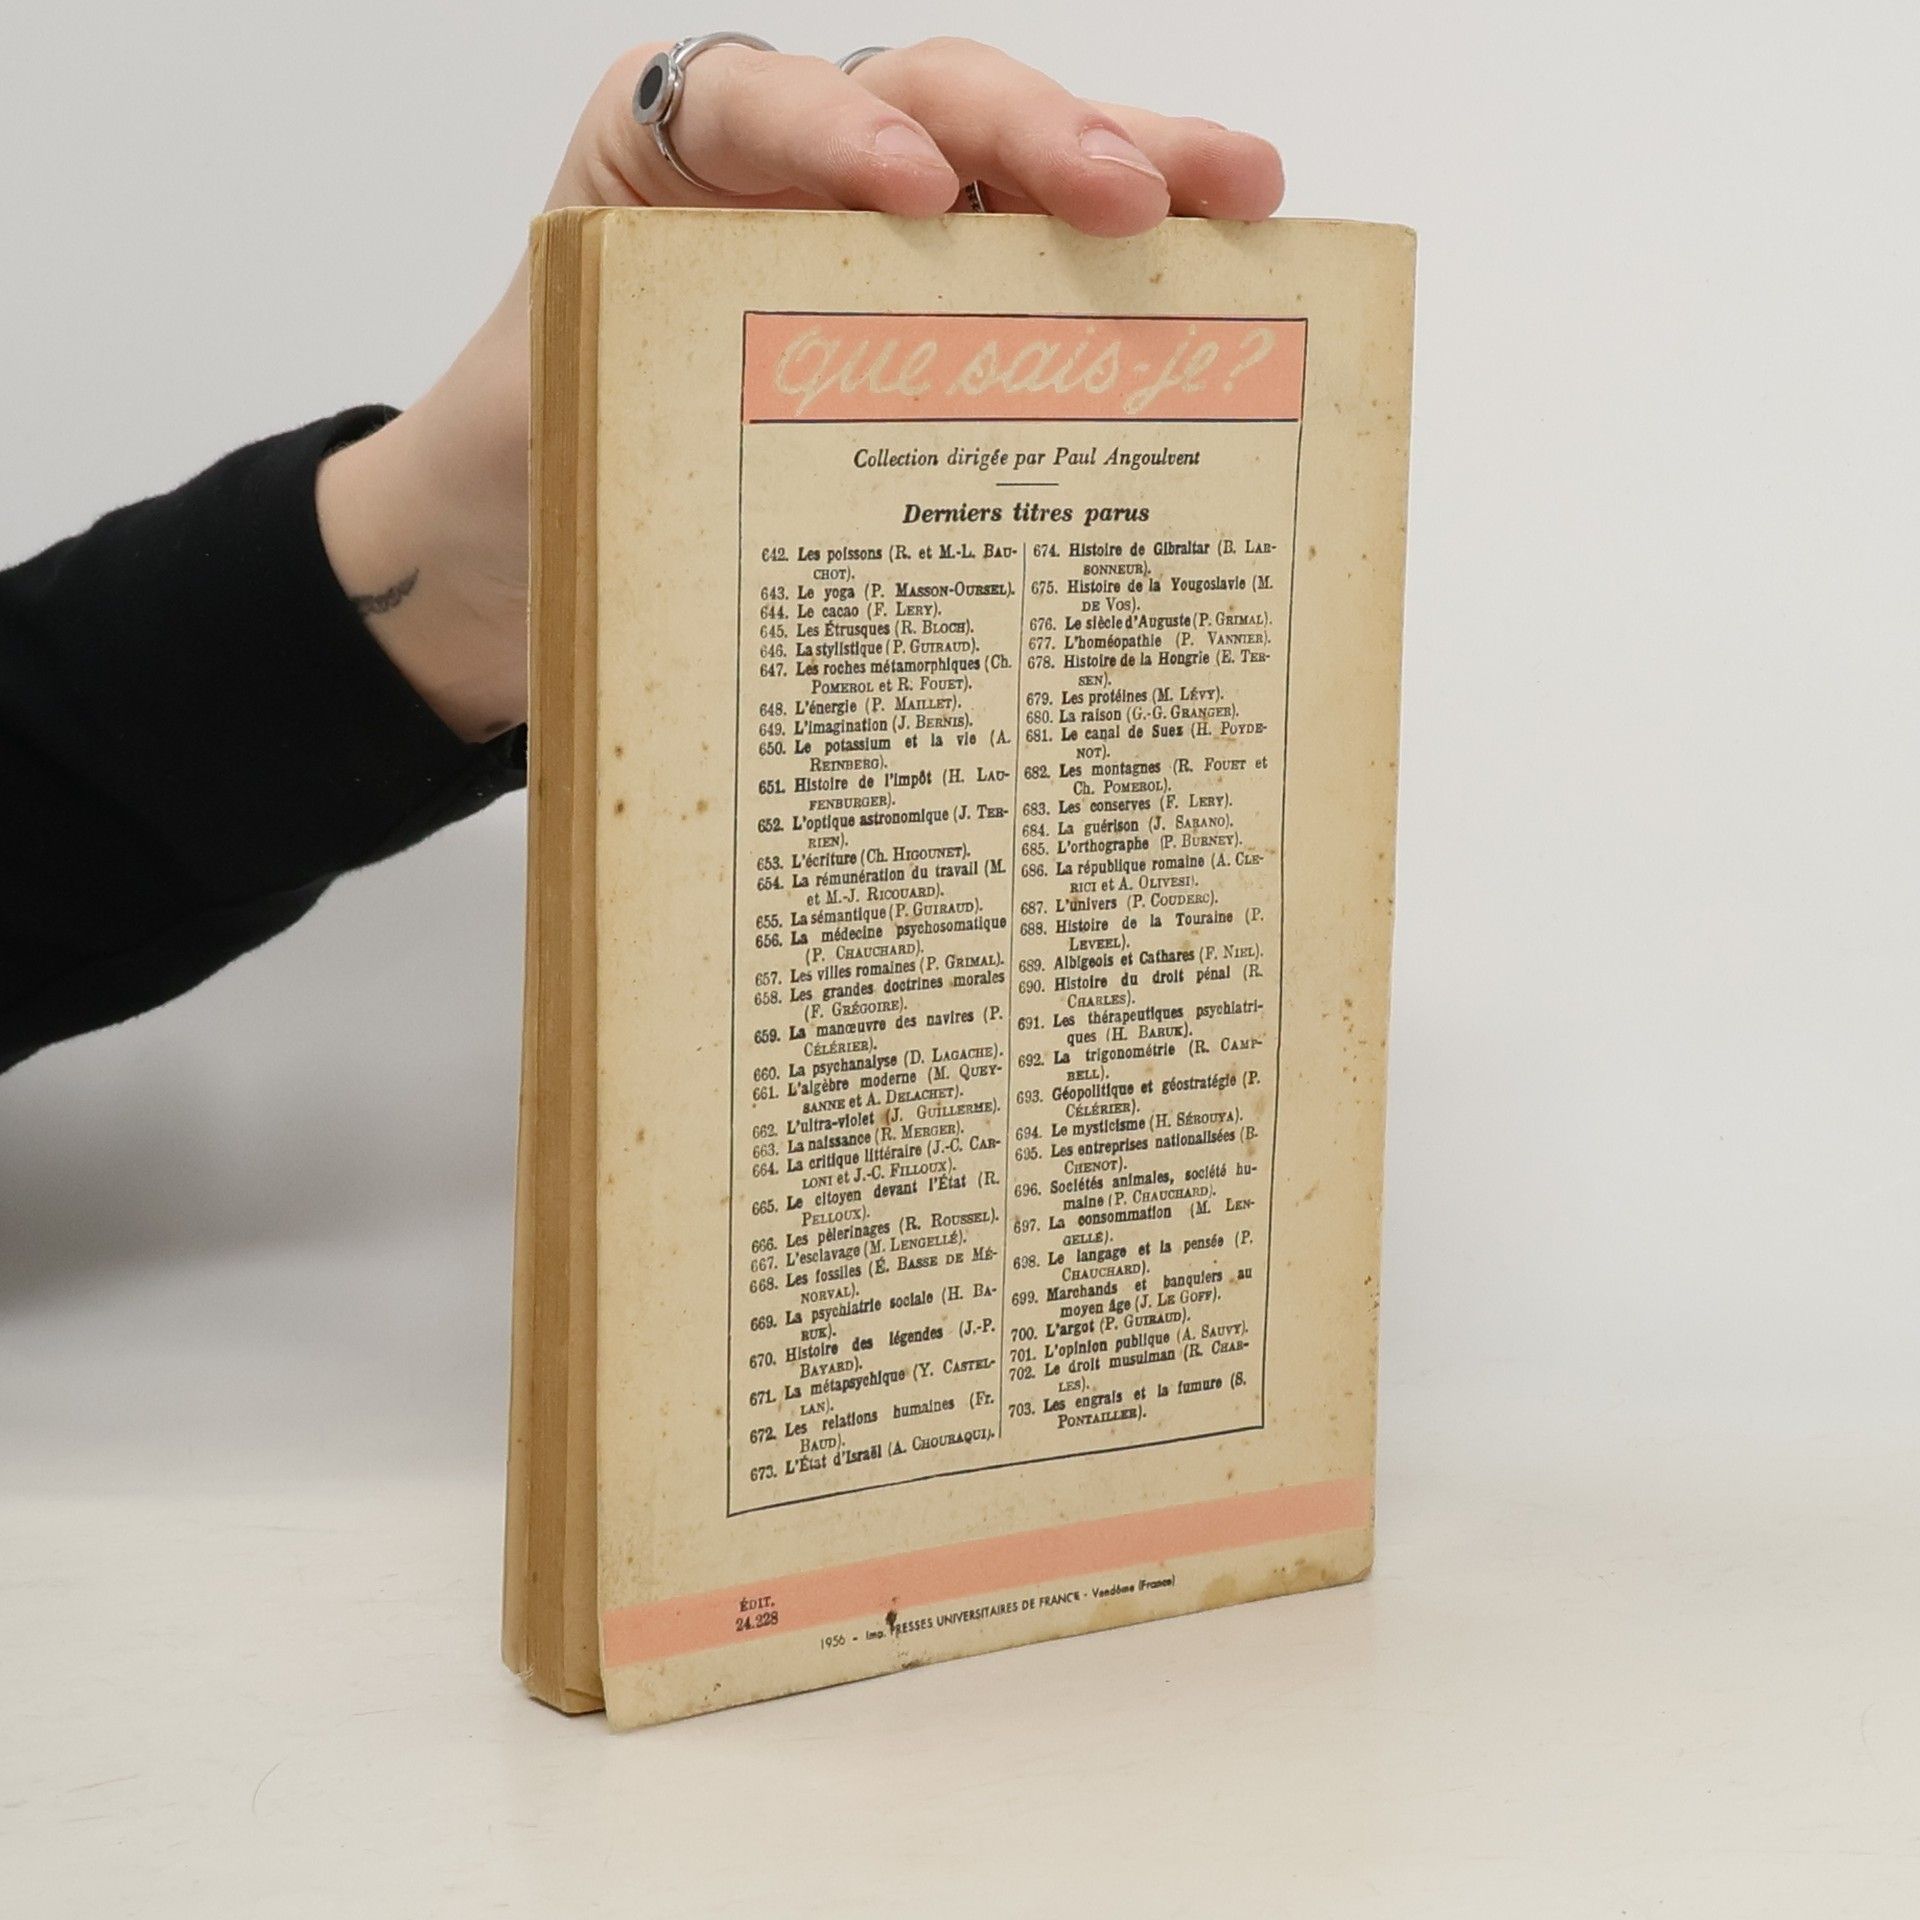 que sais-je?
Collection dirigée par Paul Angoulvent
Derniers titres parus
642. Les poissons (R. et M.-L. BAU-
CHOT).
643. Le yoga (P. MASSON-OURSEL).
644. Le cacao (F. LERY).
645. Les Étrusques (R. BLOCH).
646. La stylistique (P. GUIRAUD).
647. Les roches métamorphiques (Ch.
POMEROL et R. FOUET).
648. L'énergie (P. MAILLET).
649. L'imagination (J. BERNIS).
650. Le potassium et la vie (A.
REINBERG).
651. Histoire de l'impôt (H. LAU-
FENBURGER).
652. L'optique astronomique (J. TER-
RIEN).
653. L'écriture (Ch. HIGOUNET).
654. La rémunération du travail (M.
et M.-J. RICOUARD).
655. La sémantique (P. GUIRAUD).
656. La médecine psychosomatique
(P. CHAUCHARD).
657. Les villes romaines (P. GRIMAL).
658. Les grandes doctrines morales
(F. GRÉGOIRE).
659. La manœuvre des navires (P.
CÉLÉRIER).
660. La psychanalyse (D. LAGACHE).
661. L'algèbre moderne (M. QUEY-
SANNE et A. DELACHET).
662. L'ultra-violet (J. GUILLERME).
663. La naissance (R. MERGER).
664. La critique littéraire (J.-C. CAR-
LONI et J.-C. FILLOUX).
665. Le citoyen devant l'État (R.
PELLOUX).
666. Les pèlerinages (R. ROUSSEL).
667. L'esclavage (M. LENGELLÉ).
668. Les fossiles (É. BASSE DE MÉ-
NORVAL).
669. La psychiatrie sociale (H. BA-
RUK).
670. Histoire des légendes (J.-P.
BAYARD).
671. La métapsychique (Y. CASTEL-
LAN).
672. Les relations humaines (Fr.
BAUD).
673. L'État d'Israël (A. CHOURAQUI).
674. Histoire de Gibraltar (B. LAR-
SONNEUR).
675. Histoire de la Yougoslavie (M.
DE VOS).
676. Le siècle d'Auguste (P. GRIMAL).
677. L'homéopathie (P. VANNIER).
678. Histoire de la Hongrie (E. TER-
SEN).
679. Les protéines (M. LÉVY).
680. La raison (G.-G. GRANGER).
681. Le canal de Suez (H. POYDE-
NOT).
682. Les montagnes (R. FOUET et
Ch. POMEROL).
683. Les conserves (F. LERY).
684. La guérison (J. SARANO).
685. L'orthographe (P. BURNEY).
686. La république romaine (A. CLE-
RICI et A. OLIVESI).
687. L'univers (P. COUDERC).
688. Histoire de la Touraine (P.
LEVEEL).
689. Albigeois et Cathares (F. NIEL).
690. Histoire du droit pénal (R.
CHARLES).
691. Les thérapeutiques psychiatri-
ques (H. BARUK).
692. La trigonométrie (R. CAMP-
BELL).
693. Géopolitique et géostratégie (P.
CÉLÉRIER).
694. Le mysticisme (H. SÉROUYA).
695. Les entreprises nationalisées (B.
CHENOT).
696. Sociétés animales, société hu-
maine (P. CHAUCHARD).
697. La consommation (M. LEN-
GELLÉ).
698. Le langage et la pensée (P.
CHAUCHARD).
699. Marchands et banquiers au
moyen âge (J. LE GOFF).
700. L'argot (P. GUIRAUD).
701. L'opinion publique (A. SAUVY).
702. Le droit musulman (R. CHAR-
LES).
703. Les engrais et la fumure (S.
PONTAILLER).
ÉDIT.
24.228
1956 - Imp. PRESSES UNIVERSITAIRES DE FRANCE - Vendôme (France)